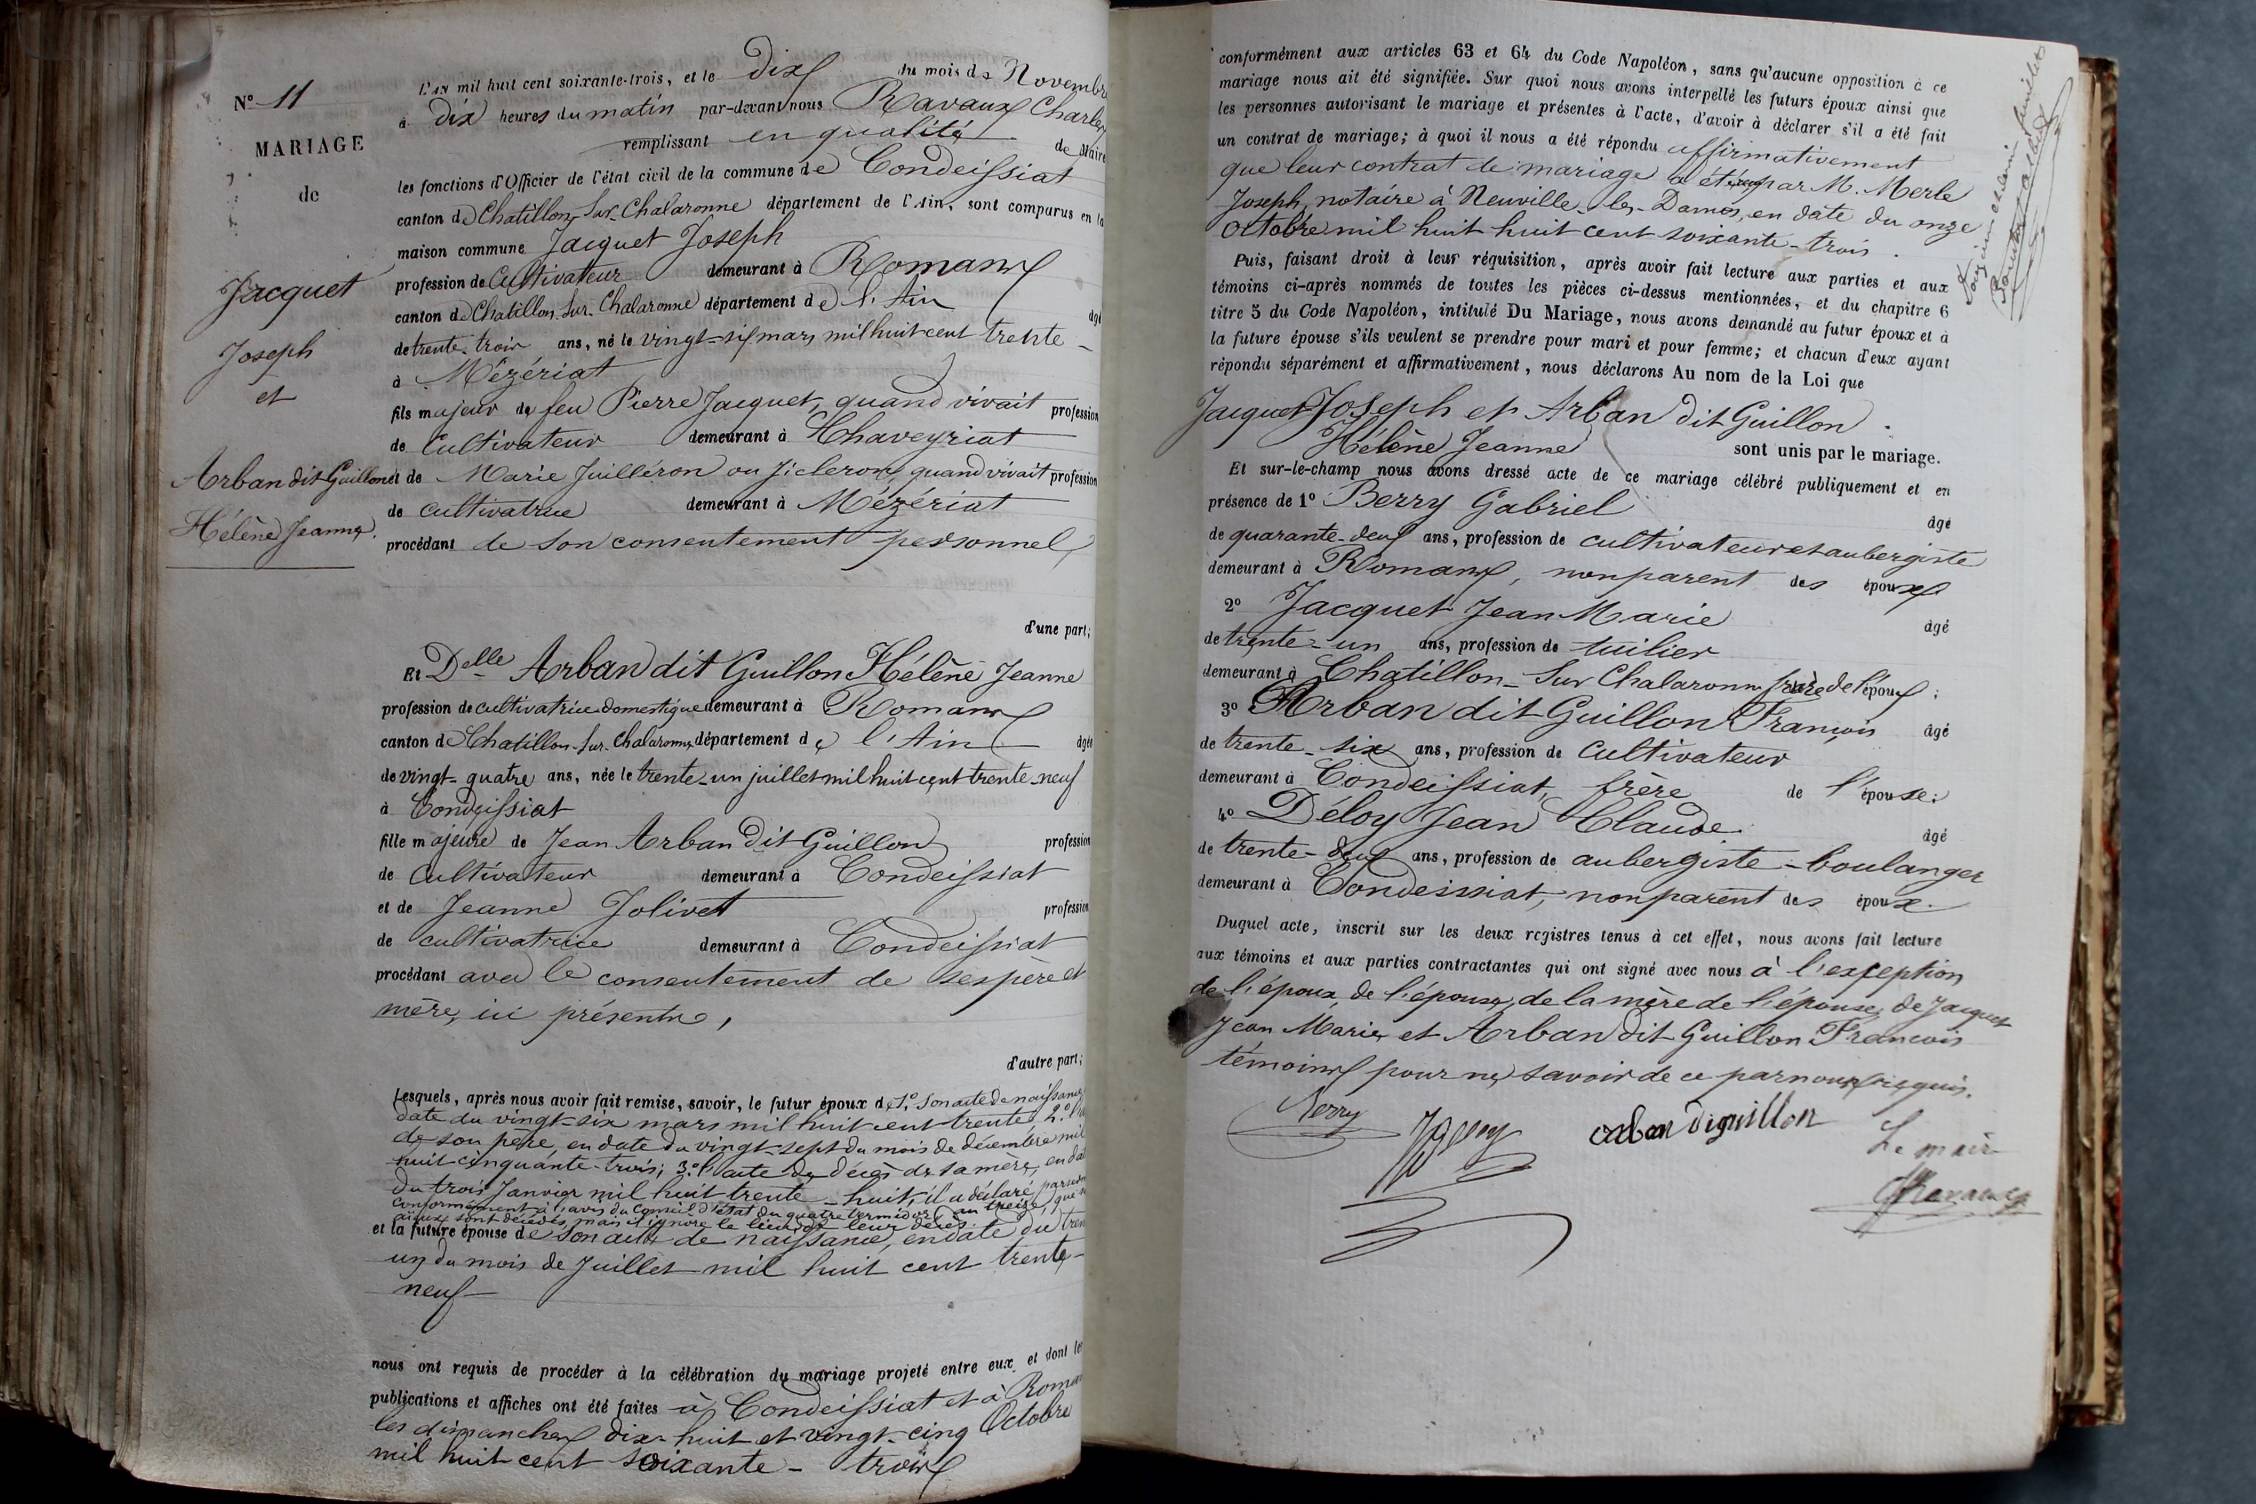 N° 11
MARIAGE
de
Jacquet
Joseph
et
Arban dit Guillon
Hélène Jeanne.
L'an mil huit cent soixante-trois, et le dix du mois de Novembre
à dix heures du matin par-devant nous Ravaux Charles
remplissant en qualité de Maire
les fonctions d'Officier de l'état civil de la commune de Condeissiat
canton de Chatillon-Sur-Chalaronne département de l'Ain, sont comparus en la
maison commune Jacquet Joseph
profession de Cultivateur demeurant à Romans
canton de Chatillon-Sur-Chalaronne département de l'Ain âgé
de trente-trois ans, né le vingt-six mars mil huit cent trente
à Mézériat
fils majeur de feu Pierre Jacquet, quand vivait profession
de Cultivateur demeurant à Chaveyriat
et de Marie Juilléron ou Jicleron, quand vivait profession
de cultivatrice demeurant à Mézériat
procédant de son consentement personnel
d'une part;
Et Delle Arban dit Guillon Hélène Jeanne
profession de cultivatrice domestique demeurant à Romans
canton de Chatillon-Sur-Chalaronne département de l'Ain âgée
de vingt-quatre ans, née le trente-un juillet mil huit cent trente-neuf
à Condeissiat
fille majeure de Jean Arban dit Guillon profession
de Cultivateur demeurant à Condeissiat
et de Jeanne Jolivet profession
de cultivatrice demeurant à Condeissiat
procédant avec le consentement de ses père et
mère, ici présents,
d'autre part;
Lesquels, après nous avoir fait remise, savoir, le futur époux de 1° son acte de naissance
date du vingt-six mars mil huit cent trente, 2°
de son père, en date du vingt-sept du mois de décembre mil
huit cinquante-trois; 3° l'acte de décès de sa mère, en date
du trois Janvier mil huit trente-huit, il a déclaré,
conformément à l'avis du Conseil d'état du quatre termidor an treize, que
aïeux sont décédés, mais il ignore le lieu de leur décès.
et la future épouse de son acte de naissance, en date du tren
un du mois de Juillet mil huit cent trente-
neuf
nous ont requis de procéder à la célébration du mariage projeté entre eux, et dont les
publications et affiches ont été faites à Condeissiat et à Roman
les dimanches dix-huit et vingt-cinq Octobre
mil huit cent soixante-trois
conformément aux articles 63 et 64 du Code Napoléon, sans qu'aucune opposition à ce
mariage nous ait été signifiée. Sur quoi nous avons interpellé les futurs époux ainsi que
les personnes autorisant le mariage et présentes à l'acte, d'avoir à déclarer s'il a été fait
un contrat de mariage; à quoi il nous a été répondu affirmativement
que leur contrat de mariage a été reçu par M. Merle
Joseph, notaire à Neuville-les-Dames, en date du onze
Octobre mil huit huit cent soixante-trois.
Puis, faisant droit à leur réquisition, après avoir fait lecture aux parties et aux
témoins ci-après nommés de toutes les pièces ci-dessus mentionnées, et du chapitre 6
titre 5 du Code Napoléon, intitulé Du Mariage, nous avons demandé au futur époux et à
la future épouse s'ils veulent se prendre pour mari et pour femme; et chacun d'eux ayant
répondu séparément et affirmativement, nous déclarons Au nom de la Loi que
Jacquet Joseph et Arban dit Guillon
Hélène Jeanne sont unis par le mariage.
Et sur-le-champ nous avons dressé acte de ce mariage célébré publiquement et en
présence de 1° Berry Gabriel âgé
de quarante-deux ans, profession de cultivateur et aubergiste
demeurant à Romans, non parent des époux
2° Jacquet Jean Marie âgé
de trente-un ans, profession de tuilier
demeurant à Chatillon-Sur Chalaronne frère de l'époux;
3° Arban dit Guillon François âgé
de trente-six ans, profession de Cultivateur
demeurant à Condeissiat, frère de l'épouse;
4° Déloy Jean Claude âgé
de trente-deux ans, profession de aubergiste-boulanger
demeurant à Condeissiat, non parent des époux.
Duquel acte, inscrit sur les deux registres tenus à cet effet, nous avons fait lecture
aux témoins et aux parties contractantes qui ont signé avec nous à l'exception
de l'époux, de l'épouse, de la mère de l'épouse, de Jacquet
Jean Marie et Arban dit Guillon François
témoins pour ne savoir de ce par nous requis.
Berry
arban diguillon
Le maire
Ravaux